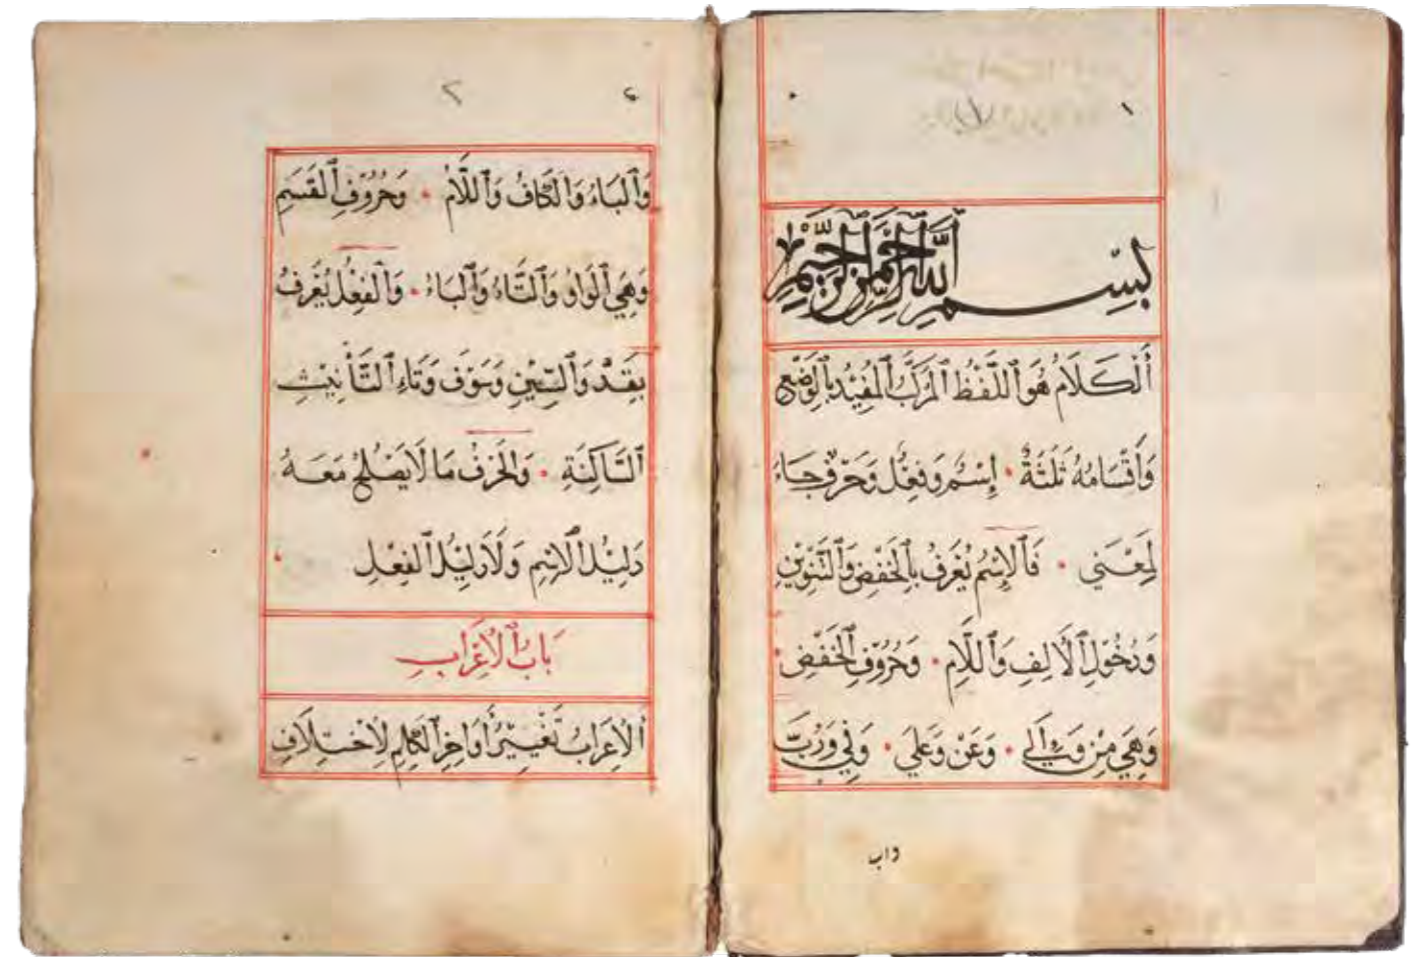 ١
بِسْمِ اللَّهِ الرَّحْمَنِ الرَّحِيمِ
أَلْكَلَامُ هُوَ اللَّفْظُ الْمُرَكَّبُ الْمُفِيْدُ بِالْوَضْعِ
وَأَقْسَامُهُ ثَلٰثَةٌ • إِسْمٌ وَفِعْلٌ وَحَرْفٌ جَاءَ
لِمَعْنَي • فَالْاِسْمُ يُعْرَفُ بِالْخَفْضِ وَالتَّنْوِيْنِ
وَدُخُوْلِ الْأَلِفِ وَاللَّامِ • وَحُرُوْفِ الْخَفْضِ •
وَهِيَ مِنْ وَإِلَي • وَعَنْ وَعَلَي • وَفِي وَرُبَّ
واب
٢
وَالْبَاءُ وَالْكَافُ وَاللَّامُ • وَحُرُوْفِ الْقَسَمِ
وَهِيَ الْوَاوُ وَالتَّاءُ وَالْبَاءُ • وَالْفِعْلُ يُعْرَفُ
بِقَدْ وَالسِّيْنِ وَسَوْفَ وَتَاءِ التَّأْنِيْثِ
السَّاكِنَةِ • وَالْحَرْفُ مَا لَا يَصْلُحُ مَعَهُ
دَلِيْلُ الْاِسْمِ وَلَا دَلِيْلُ الْفِعْلِ •
بَابُ الْاِعْرَابِ
اَلْاِعْرَابُ تَغْيِيْرُ أَوَاخِرِ الْكَلِمِ لِاخْتِلَافِ